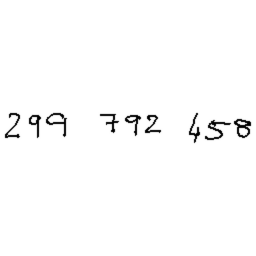 299 792 458